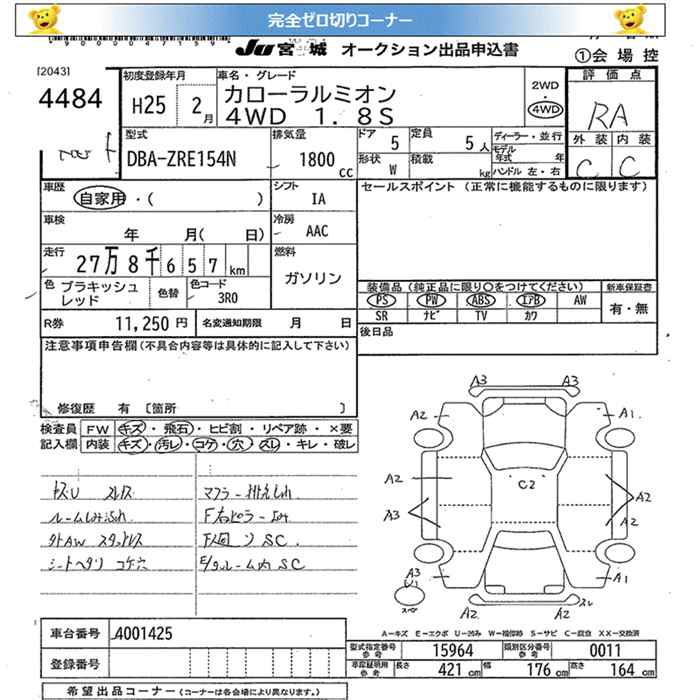 完全ゼロ切りコーナー
JU宮城 オークション出品申込書
①会場控
[2043]
4484
初度登録年月
H25 2月
車名・グレード
カローラルミオン
4WD 1.8S
2WD
・
4WD
評価点
RA
外装 内装
C C
型式
DBA-ZRE154N
排気量
1800 CC
ドア 5
定員 5人
形状 W
積載 kg
ディーラー・並行
モデル年式 年
ハンドル 左・右
車歴
自家用・( )
シフト
IA
セールスポイント (正常に機能するものに限ります)
車検
年 月( 日)
冷房
AAC
走行
27万8千657km
燃料
ガソリン
色 ブラキッシュレッド
色替
色コード
3R0
装備品 (純正品に限り○をつけてください)
新車保証書
PS PW ABS エアB AW
SR ナビ TV カワ
有・無
R券 11,250円
名変通知期限 月 日
後日品
注意事項申告欄(不具合内容等は具体的に記入して下さい)
修復歴 有 〔箇所 〕
検査員 FW キズ・飛石・ヒビ割・リペア跡・×要
記入欄 内装 キズ・汚レ・コゲ・穴・スレ・キレ・破レ
ルームしみ汚れ
外AW スタッドレス
シートヘタリ コゲ穴
マフラー排気もれ
F右ピラーエクボ
下回りSC
E/gルーム内SC
A3 A3
A2 A1
A2 C2 A2
A3 A2
A3 A1
A2 A2 スレ
A－キズ E－エクボ U－凹み W－補修跡 S－サビ C－腐食 XX－交換済
車台番号 4001425
登録番号
型式指定番号 参考 15964
類別区分番号 参考 0011
車庫証明用 参考 長さ 421cm 幅 176cm 高さ 164cm
希望出品コーナー (コーナーは各会場により異なります。)